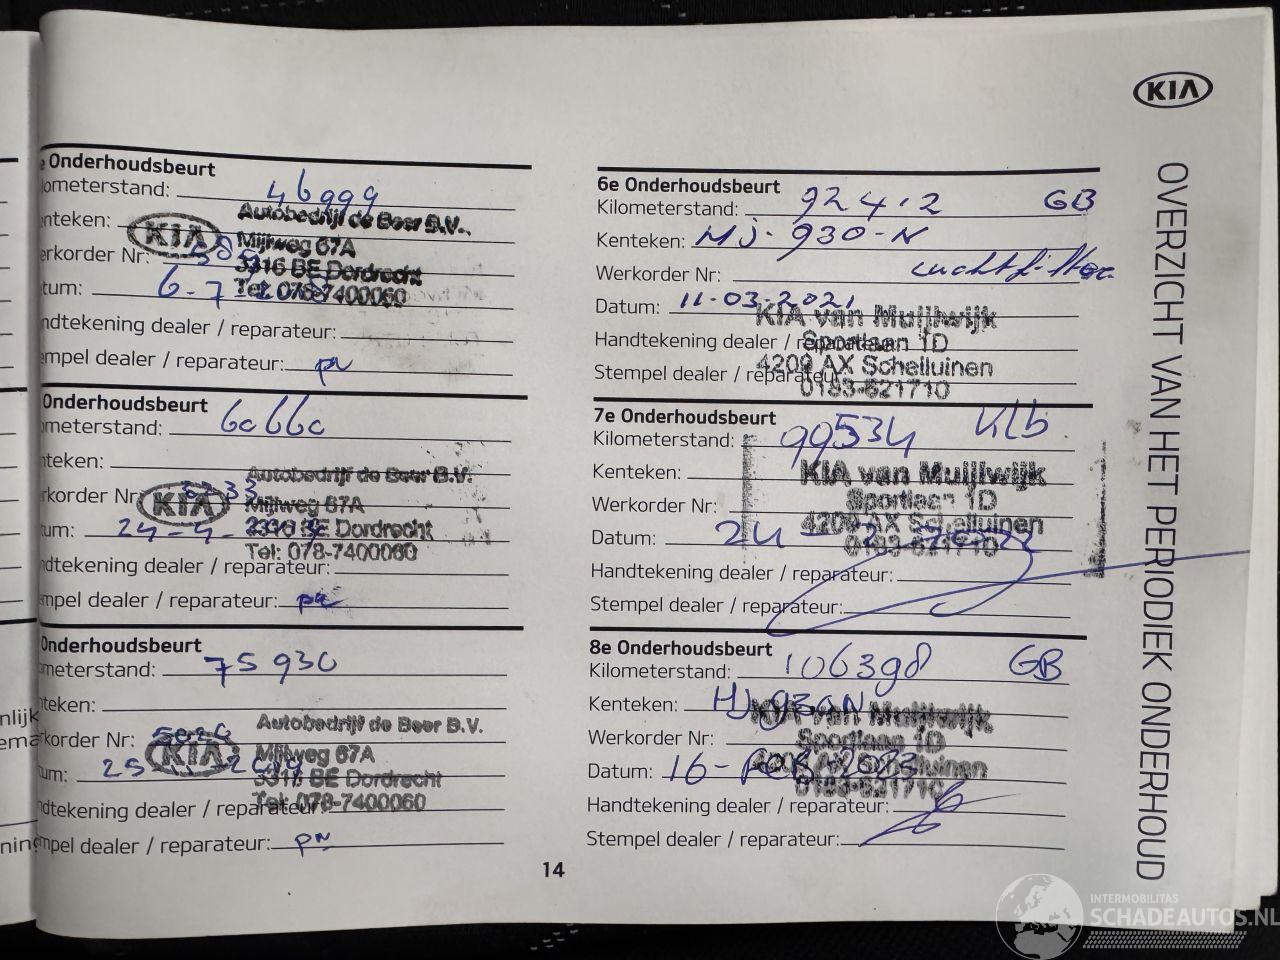 KIA
OVERZICHT VAN HET PERIODIEK ONDERHOUD
Onderhoudsbeurt
ometerstand: 46999
nteken:
KIA
Autobedrijf de Beer B.V.
Mijlweg 67A
3316 BE Dordrecht
Tel: 078-7400060
erkorder Nr:
tum: 6-7
ndtekening dealer / reparateur:
empel dealer / reparateur:
Onderhoudsbeurt
ometerstand: 60660
nteken:
rkorder Nr:
KIA
Autobedrijf de Beer B.V.
Mijlweg 67A
3316 BE Dordrecht
Tel: 078-7400060
um: 24-4-
dtekening dealer / reparateur:
mpel dealer / reparateur:
Onderhoudsbeurt
meterstand: 75930
teken:
korder Nr:
KIA
Autobedrijf de Beer B.V.
Mijlweg 67A
3316 BE Dordrecht
Tel: 078-7400060
um: 25
dtekening dealer / reparateur:
mpel dealer / reparateur:
6e Onderhoudsbeurt
Kilometerstand: 924.2 GB
Kenteken: HJ-930-N
Werkorder Nr: luchtfilter
Datum: 11-03-2021
KIA van Muijlwijk
Sportlaan 1D
4209 AX Schelluinen
0183-621710
Handtekening dealer / reparateur:
Stempel dealer / reparateur:
7e Onderhoudsbeurt
Kilometerstand: 99534 Klb
Kenteken:
KIA van Muijlwijk
Sportlaan 1D
4209 AX Schelluinen
0183-621710
Werkorder Nr:
Datum: 24
Handtekening dealer / reparateur:
Stempel dealer / reparateur:
8e Onderhoudsbeurt
Kilometerstand: 106398 GB
Kenteken: HJ930N
KIA van Muijlwijk
Sportlaan 1D
4209 AX Schelluinen
0183-621710
Werkorder Nr:
Datum: 16-FEB-2023
Handtekening dealer / reparateur:
Stempel dealer / reparateur:
14
INTERMOBILITAS
SCHADEAUTOS.NL